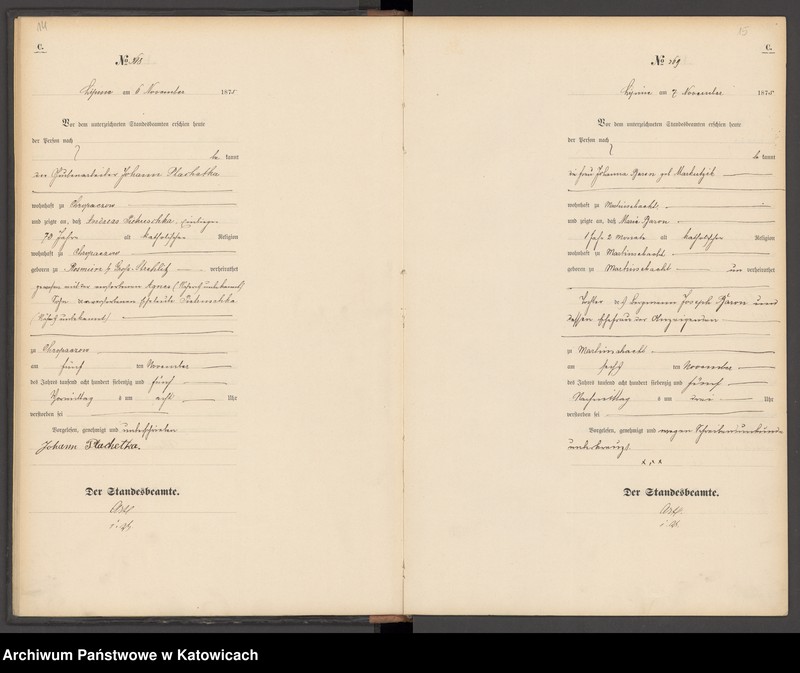 C.
№ 168
Lipine am 6 November 1875
Vor dem unterzeichneten Standesbeamten erschien heute
der Person nach
be kannt
Johann Plachetka
wohnhaft zu Chropaczow
und zeigte an, daß Andreas
70 Jahre alt katholischer Religion
wohnhaft zu Chropaczow
geboren zu Groß Strehlitz verheirathet
Agnes
zu Chropaczow
am fünf ten November
des Jahres tausend acht hundert siebenzig und fünf
Vormittag s um acht Uhr
verstorben sei
Vorgelesen, genehmigt und unterschrieben
Johann Plachetka.
Der Standesbeamte.
15
C.
№ 169
Lipine am 7 November 1875
Vor dem unterzeichneten Standesbeamten erschien heute
der Person nach
be kannt
die Frau Johanna Baron geb
wohnhaft zu Martinschacht
und zeigte an, daß Marie Baron
1 Jahr 2 Monate alt katholischer Religion
wohnhaft zu Martinschacht
geboren zu Martinschacht un verheirathet
Tochter des Bergmann Joseph Baron und
dessen Ehefrau der Anzeigenden
zu Martinschacht
am sechs ten November
des Jahres tausend acht hundert siebenzig und fünf
Nachmittag s um Uhr
verstorben sei
Vorgelesen, genehmigt und wegen Schreibensunkunde
unterkreuzt.
x x x
Der Standesbeamte.
Archiwum Państwowe w Katowicach